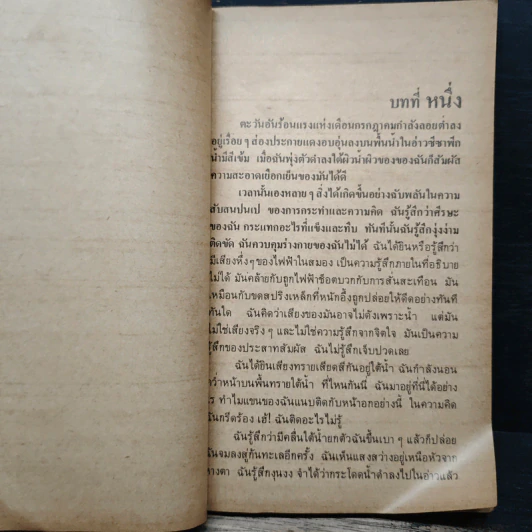 บทที่ หนึ่ง
ตะวันอันร้อนแรงแห่งเดือนกรกฎาคมกำลังลอยต่ำลง
อยู่เรื่อย ๆ ส่องประกายแดงอบอุ่นลงบนพื้นน้ำในอ่าวซีซาพีก
น้ำมีสีเข้ม เมื่อฉันพุ่งตัวดำลงใต้ผิวน้ำผิวของของฉันก็สัมผัส
ความสะอาดเยือกเย็นของมันได้ดี
เวลานั้นเองหลาย ๆ สิ่งได้เกิดขึ้นอย่างฉับพลันในความ
สับสนปนเป ของการกระทำและความคิด ฉันรู้สึกว่าศีรษะ
ของฉัน กระแทกอะไรที่แข็งและทึบ ทันทีนั้นฉันรู้สึกงุ่งง่าม
ติดขัด ฉันควบคุมร่างกายของฉันไม่ได้ ฉันได้ยินหรือรู้สึกว่า
มีเสียงหึ่ง ๆ ของไฟฟ้าในสมอง เป็นความรู้สึกภายในที่อธิบาย
ไม่ได้ มันคล้ายกับถูกไฟฟ้าช็อตบวกกับการสั่นสะเทือน มัน
เหมือนกับขดสปริงเหล็กที่หนักอึ้งถูกปล่อยให้ดีดอย่างทันที
ทันใด ฉันคิดว่าเสียงของมันอาจไม่ดังเพราะน้ำ แต่มัน
ไม่ใช่เสียงจริง ๆ และไม่ใช่ความรู้สึกจากจิตใจ มันเป็นความ
รู้สึกของประสาทสัมผัส ฉันไม่รู้สึกเจ็บปวดเลย
ฉันได้ยินเสียงทรายเสียดสีกันอยู่ใต้น้ำ ฉันกำลังนอน
คว่ำหน้าบนพื้นทรายใต้น้ำ ที่ไหนกันนี่ ฉันมาอยู่ที่นี่ได้อย่าง
ไร ทำไมแขนของฉันแนบติดกับหน้าอกอย่างนี้ ในความคิด
ฉันกรีดร้อง เฮ้! ฉันติดอะไรไม่รู้
ฉันรู้สึกว่ามีคลื่นใต้น้ำยกตัวฉันขึ้นเบา ๆ แล้วก็ปล่อย
ฉันจมลงสู่ก้นทะเลอีกครั้ง ฉันเห็นแสงสว่างอยู่เหนือหัวจาก
หางตา ฉันรู้สึกงุนงง จำได้ว่ากระโดดน้ำดำลงไปในอ่าวแล้ว